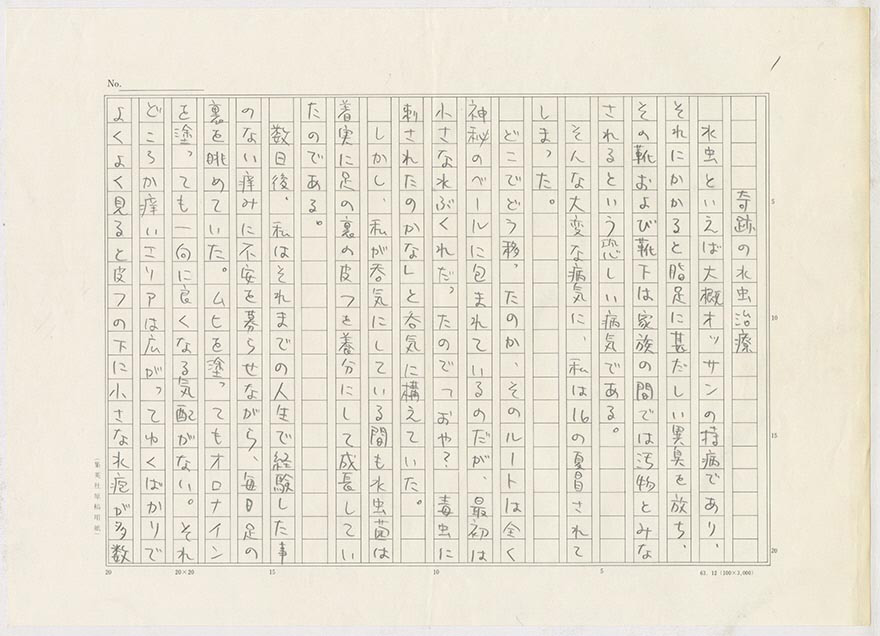 No.
奇跡の水虫治療
水虫といえば大概オッサンの持病であり、
それにかかると脂足に甚だしい異臭を放ち、
その靴および靴下は家族の間では汚物とみな
されるという恐しい病気である。
そんな大変な病気に、私は16の夏冒されて
しまった。
どこでどう移ったのか、そのルートは全く
神秘のベールに包まれているのだが、最初は
小さな水ぶくれだったので「おや?毒虫に
刺されたのかな」と呑気に構えていた。
しかし、私が呑気にしている間も水虫菌は
着実に足の裏の皮フを養分にして成長してい
たのである。
数日後、私はそれまでの人生で経験した事
のない痒みに不安を募らせながら、毎日足の
裏を眺めていた。ムヒを塗ってもオロナイン
を塗っても一向に良くなる気配がない。それ
どころか痒いエリアは広がってゆくばかりで
よくよく見ると皮フの下に小さな水疱が多数
(集英社原稿用紙)
5
10
15
20
20
20×20
15
10
5
63. 12 (100×3,000)